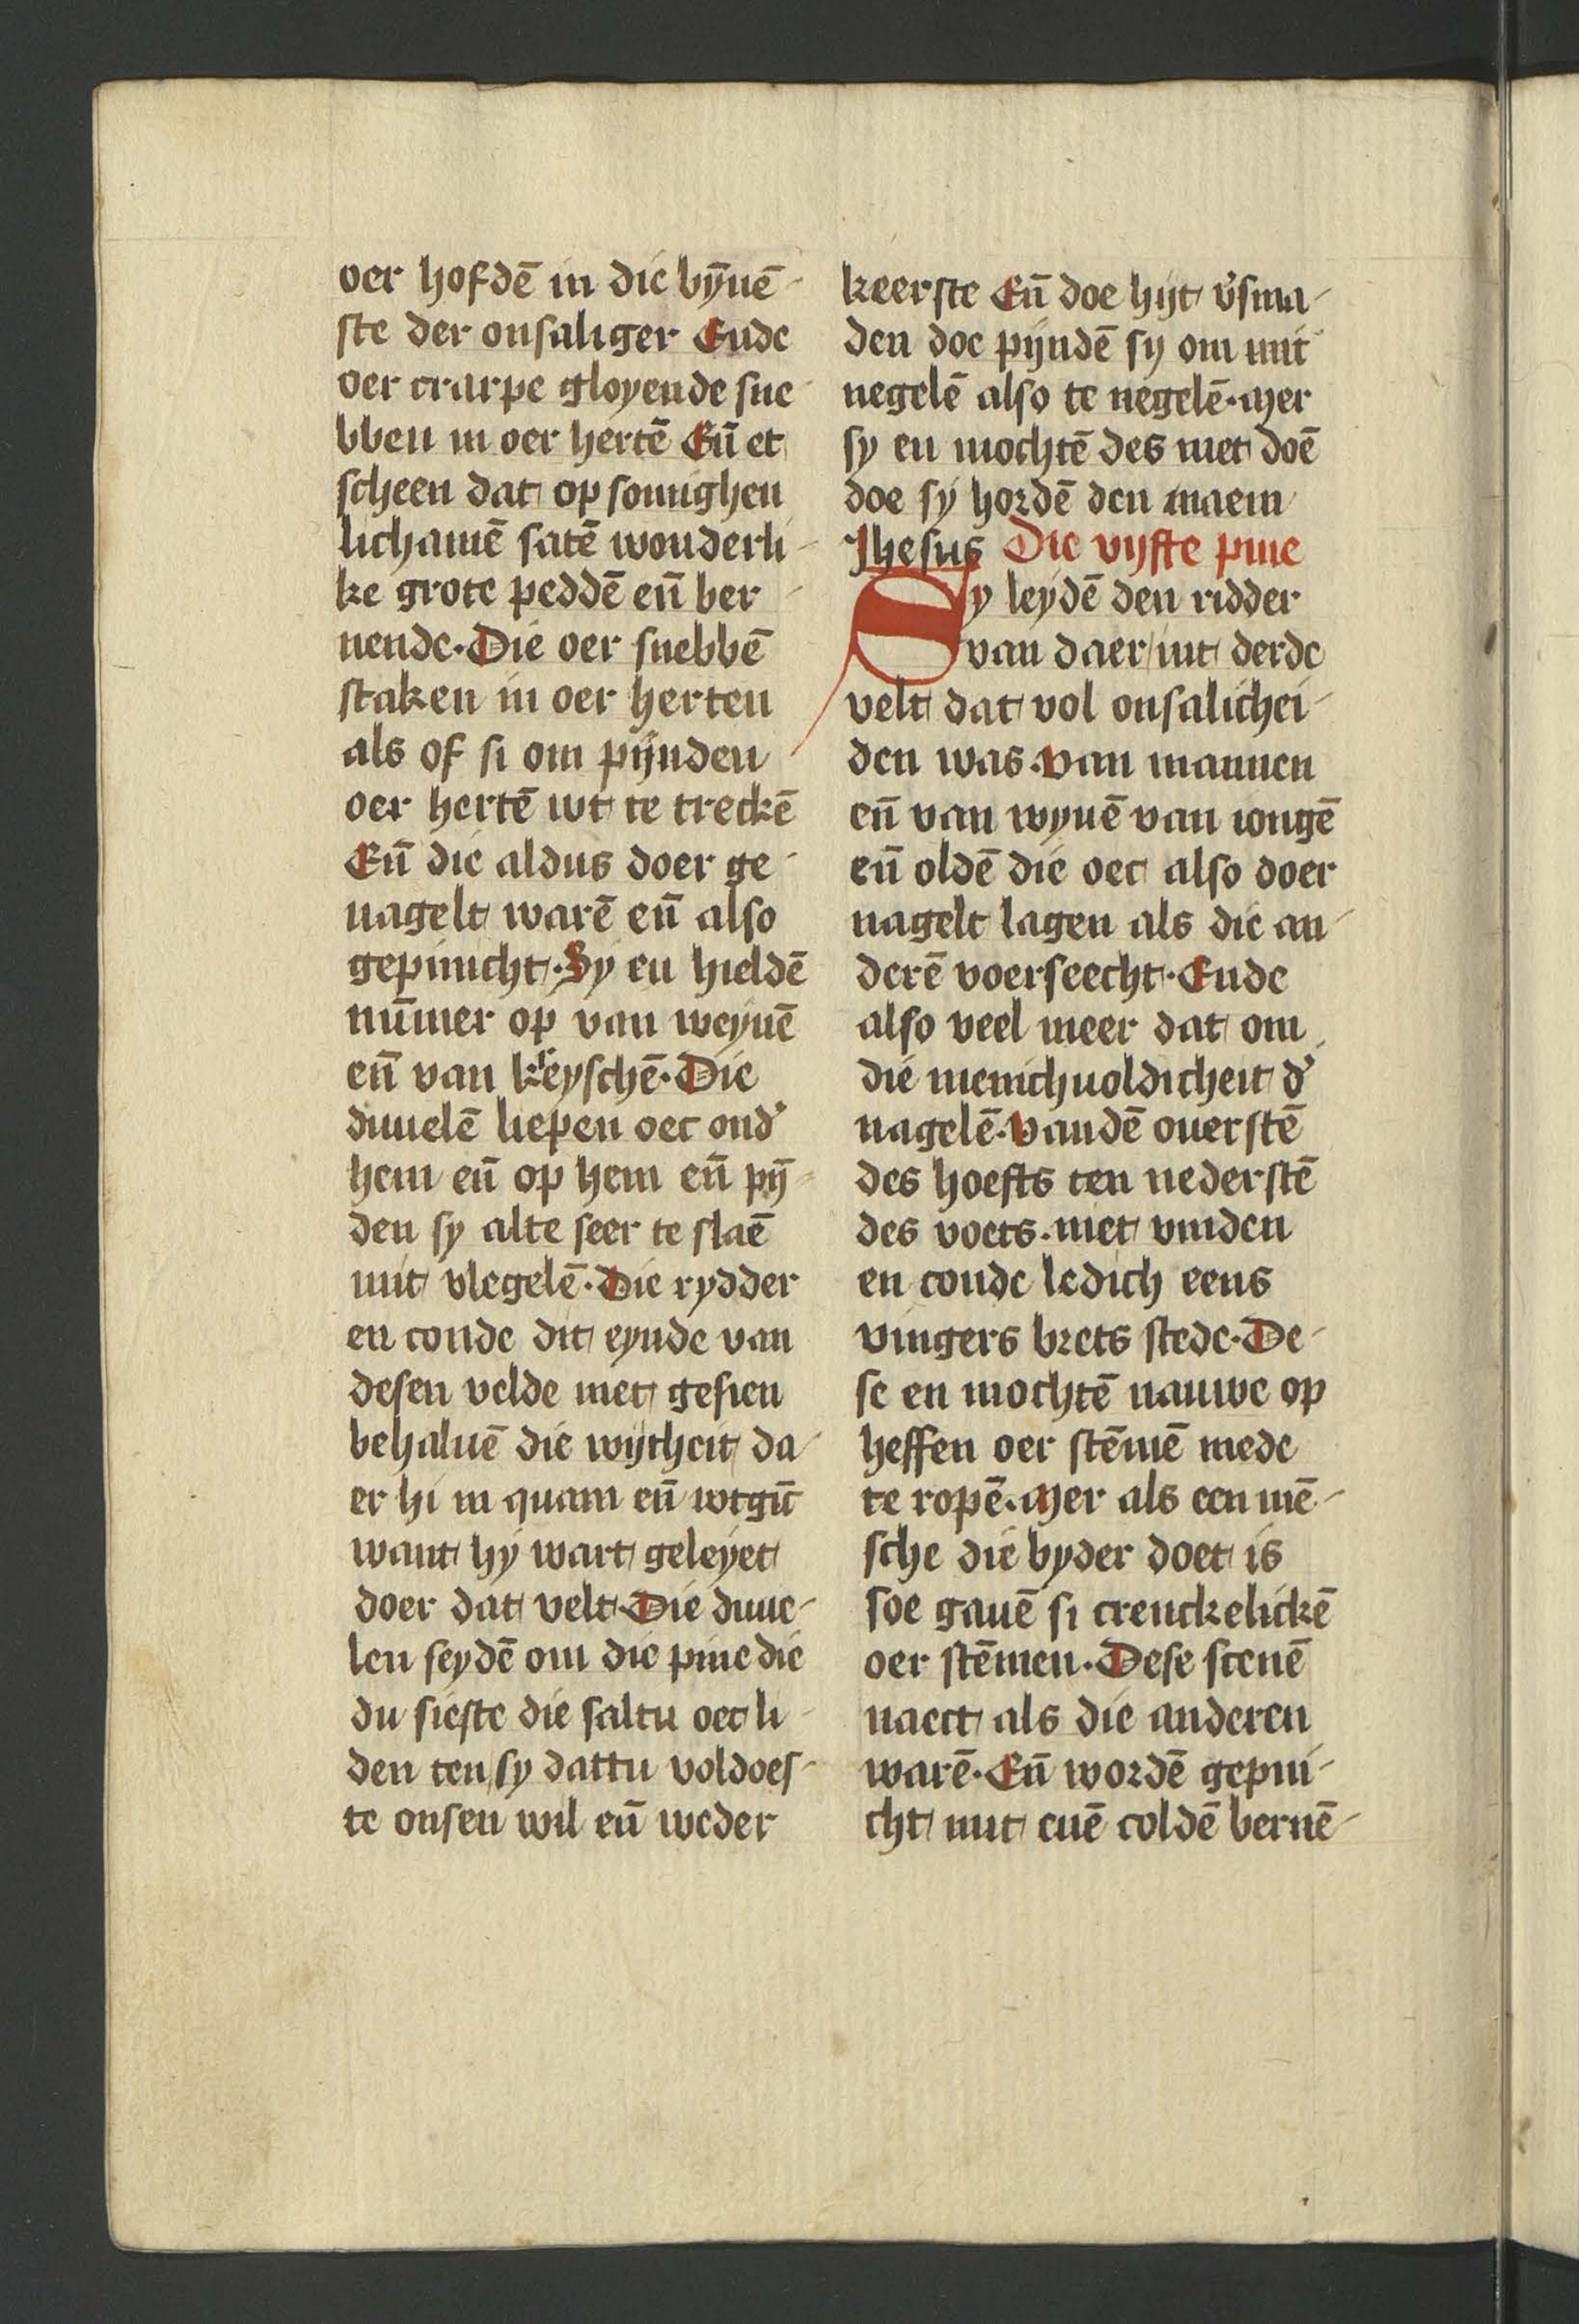 oer hofdē in die by̅nē
ste der onsaliger Ende
oer crarpe gloyende sne
bben in oer hertē En̄ et
scheen dat op somighen
lichamē satē wonderli
ke grote peddē en̄ ber
nende. Die oer snebbē
staken in oer herten
als of si om pijnden
oer hertē wt te treckē
En̄ die aldus doer ge
nagelt warē en̄ also
gepinicht. Sy en hieldē
nūmer op van weynē
en̄ van kreyschē. Die
duuelē liepen oec ond᾿
hem en̄ op hem en̄ pȳ
den sy alte seer te slaē
mit vlegelē. Die rydder
en conde dit eynde van
desen velde niet gesien
behaluē die wijtheit da
er hi in quam en̄ wtgīc
want hy wart geleyet
doer dat velt. Die duue
len seydē om die pine die
du sieste die saltu oec li
den ten sy dattu voldoes
te onsen wil en̄ weder
keerste En̄ doe hijt v᾿sma
den doe pijndē sy om mit
negelē also te negelē. Mer
sy en mochtē des niet doē
doe sy hordē den naem
Ihesus Die vijfte pine
Sy leydē den ridder
van daer int derde
velt dat vol onsalichei
den was. Van mannen
en̄ van wyuē van iongē
en̄ oldē die oec also doer
nagelt lagen als die an
derē voerseecht. Ende
also veel meer dat om
die menichuoldicheit d᾿
nagelē. Vandē ouerstē
des hoefts ten nederstē
des voets. niet vinden
en conde ledich eens
vingers brets stede. De
se en mochtē nauwe op
heffen oer stēmē mede
te ropē. Mer als een mē
sche die byder doet is
soe gauē si crenckelickē
oer stēmen. Dese scenē
naect als die anderen
warē. En̄ wordē gepini
cht mit enē coldē bernē